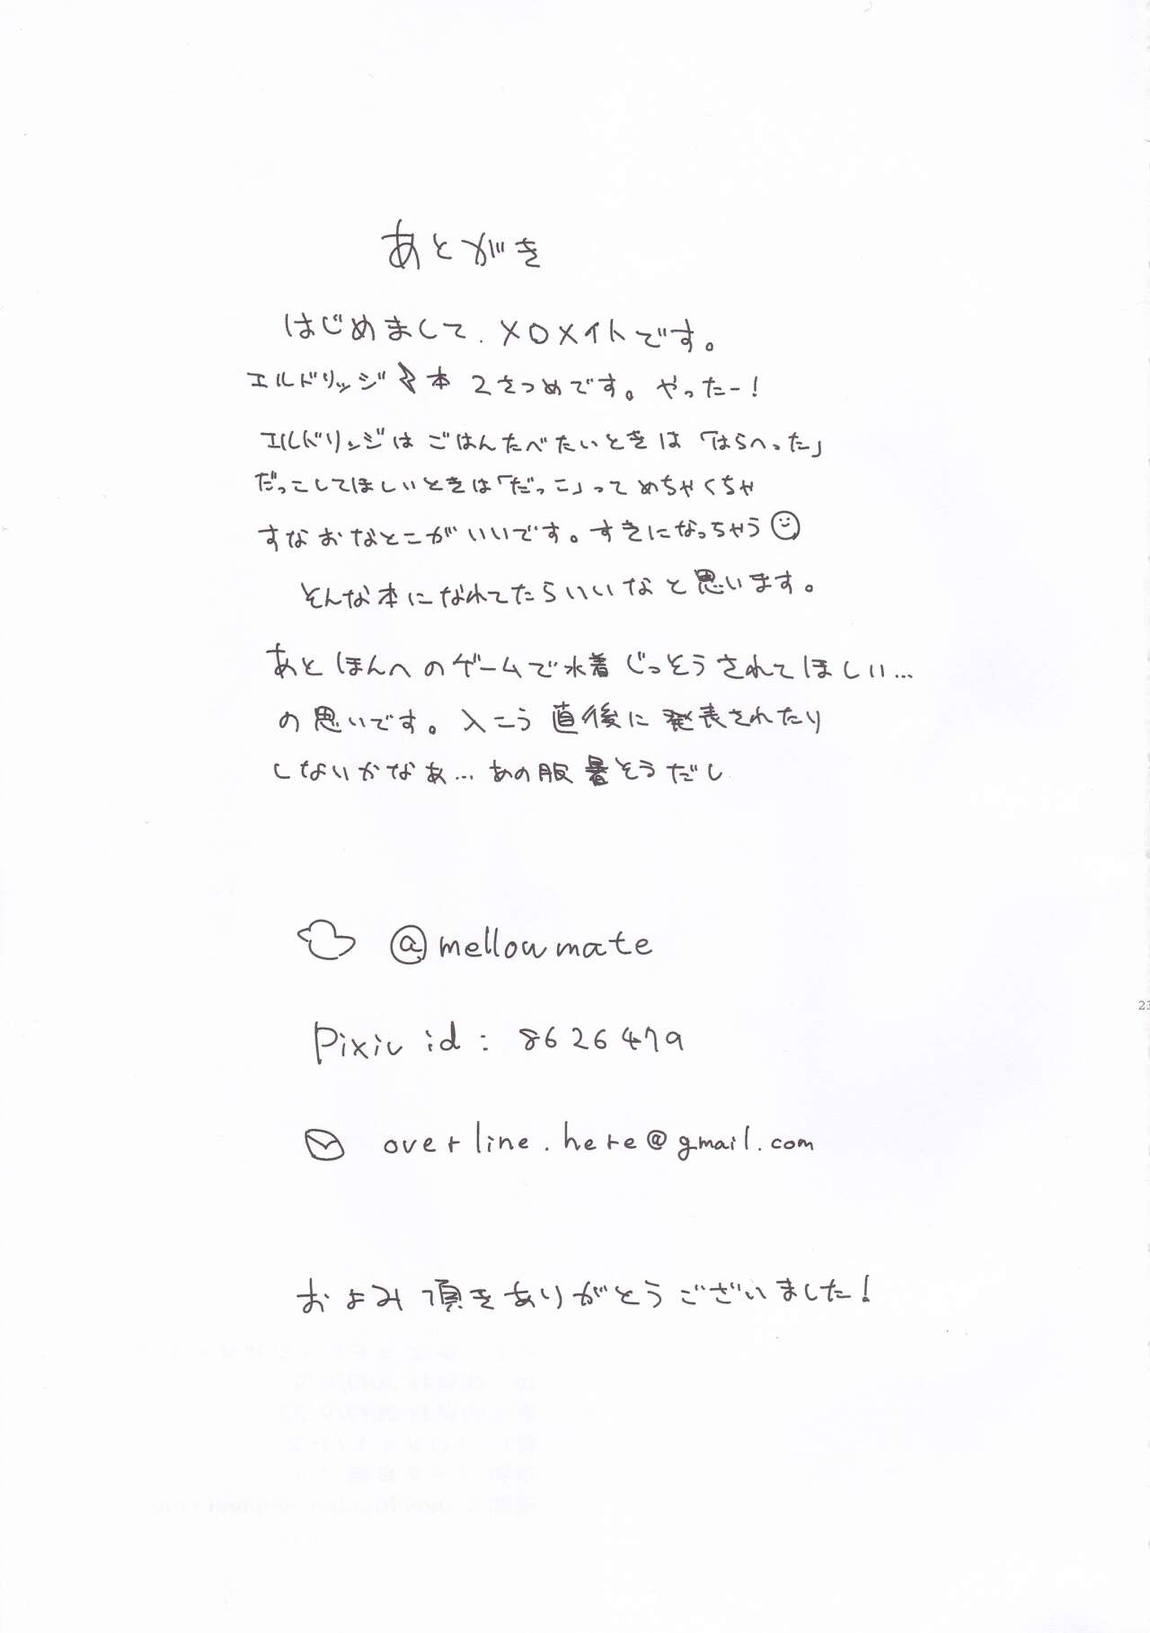 あとがき
はじめまして、メロメイトです。
エルドリッジ本 2さつめです。やったー!
エルドリッジは ごはんたべたいときは 「はらへった」
だっこしてほしいときは「だっこ」って めちゃくちゃ
すなおなとこが いいです。すきになっちゃう
そんな本になれてたらいいなと思います。
あと ほんぺのゲームで水着 じっそうされてほしい...
の思いです。入こう直後に発表されたり
しないかなぁ... あの服暑そうだし
@mellowmate
Pixiv id: 8626479
overline.here@gmail.com
およみ頂きありがとうございました!
23